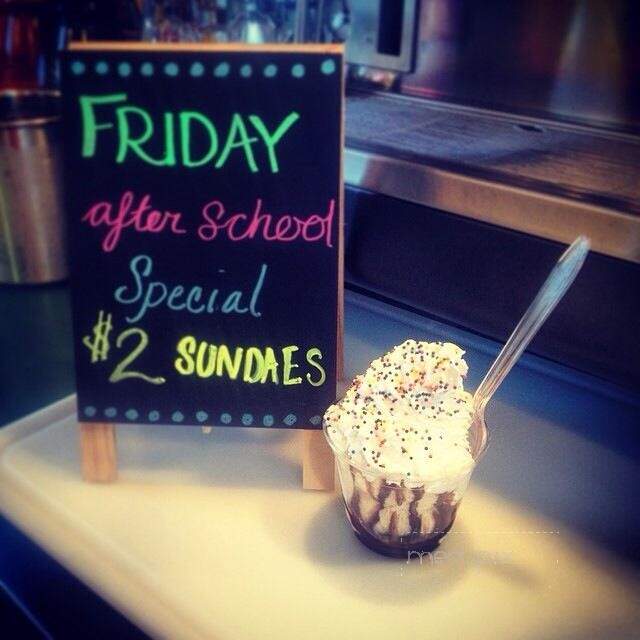 FRIDAY
after School
Special
$2 SUNDAES